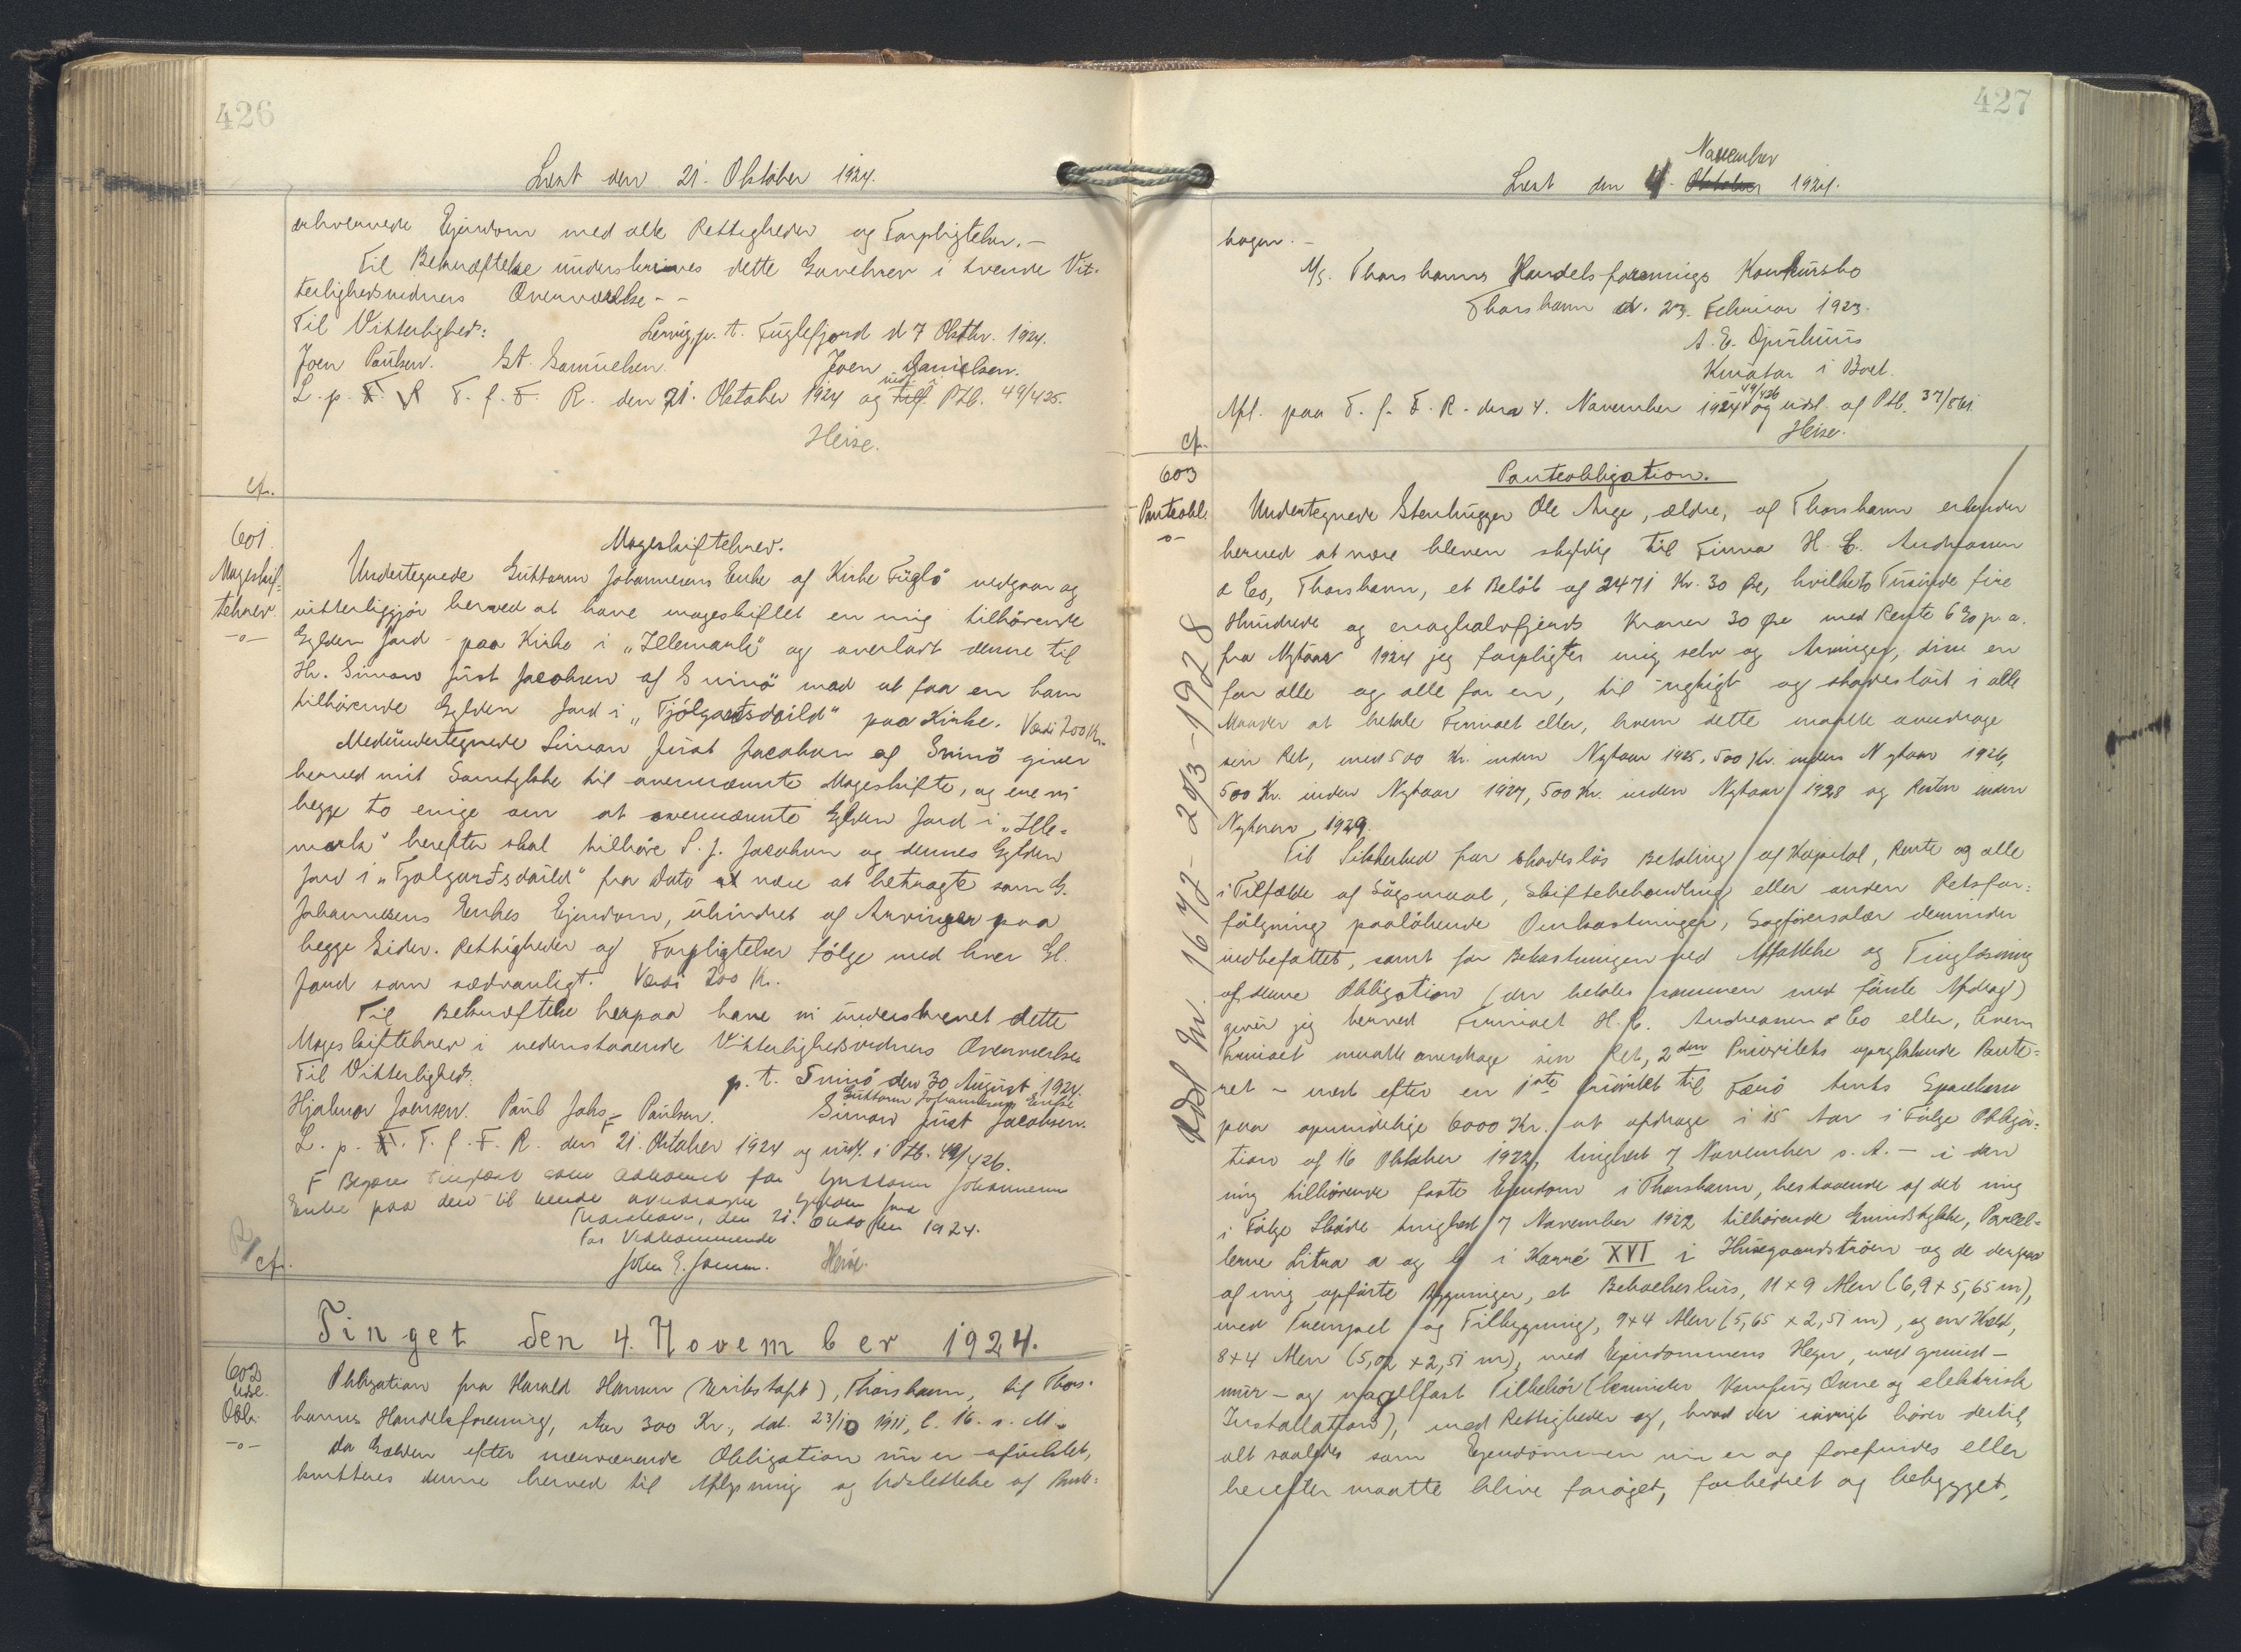 426
Læst den 21. Oktober 1924.
erhvervede Ejendom med alle Rettigheder og Forpligtelser. -
Til Bekræftelse underskrives dette Gavebrev i tvende Vit-
terlighedsvidners Overværelse - -
Til Vitterlighed: Lervig, p. t. Fuglefjord d 7 Oktbr. 1924.
Joen Poulsen. S. Samuelsen. Joen Danielsen.
L. p. F. f. F. R. den 21. Oktober 1924 og indf. i Ptb. 49/425.
Heise.
cf.
601
Mageskif-
tebrev.
-o-
Mageskiftebrev.
Undertegnede Guttorm Johannesens Enke af Kirke Fuglö vedgaar og
vitterliggjör herved at have mageskiftet en mig tilhörende
Gylden Jord paa Kirke i "Illemark" og overladt denne til
Hr. Simon Just Jacobsen af Svinö mod at faa en ham
tilhörende Gylden Jord i "Fjölgardsdeild" paa Kirke. Værdi 200 Kr.
Medundertegnede Simon Just Jacobsen af Svinö giver
herved mit Samtykke til ovennævnte Mageskifte, og ere vi
begge to enige om at ovennævnte Gylden Jord i "Ille-
mark" herefter skal tilhöre S. J. Jacobsen og dennes Gylden
Jord i "Fjölgardsdeild" fra Dato at være at betragte som G.
Johannesens Enkes Ejendom, uhindret af Arvinger paa
begge Sider. Rettigheder og Forpligtelser fölge med hver Gl.
Jord som sædvanligt. Værdi 200 Kr.
Til Bekræftelse herpaa have vi underskrevet dette
Mageskiftebrev i nedenstaaende Vitterlighedsvidners Overværelse
Til Vitterlighed: p. t. Svinö den 30 August 1924.
Guttorm Johannesens Enke
Hjalmar Joensen. Poul Johs Poulsen. Simon Just Jacobsen.
L. p. F. f. F. R. den 21. Oktober 1924 og indf. i Ptb. 49/426.
F Begæres tinglæst som Adkomst for Guttorm Johannesens
Enke paa den til hende overdragne Gylden Jord
Thorshavn, den 21. Oktober 1924.
For Vedkommende
John E. Joensen. Heise.
cf.
Tinget den 4. November 1924.
602
Udsl.
Obl.
-o-
Obligation fra Harald Hansen (Kribstoft), Thorshavn, til Thors-
havns Handelsforening, stor 300 Kr., dat. 23/10 1911, l. 16. s. M.
Da Gælden efter nærværende Obligation nu er afviklet,
kvitteres denne herved til Aflysning og Udslettelse af Pante-
427
November
Læst den 4. Oktober 1924.
bogen. -
A/S. Thorshavns Handelsforenings Konkursbo
Thorshavn d. 23. Februar 1923.
A. E. Djurhuus
Kurator i Boet.
Afl. paa F. f. F. R. den 4. November 1924 49/426 og udsl. af Ptb. 37/561.
Heise.
cf.
603
Panteobl.
-o-
Panteobligation.
Undertegnede Stenhugger Ole Arge, ældre, af Thorshavn erkender
herved at være bleven skyldig til Firma H. C. Andreasen
& Co, Thorshavn, et Belöb af 2471 Kr. 30 Öre, hvilket Tusinde fire
Hundrede og enoghalvfjerds Kroner 30 Öre med Rente 6 % p. a.
fra Nytaar 1924 jeg forpligter mig selv og Arvinger, disse en
for alle og alle for en, til rigtigt og skadeslöst i alle
Maader at betale Firmaet eller, hvem dette maatte overdrage
sin Ret, med 500 Kr. inden Nytaar 1925, 500 Kr. inden Nytaar 1926,
500 Kr. inden Nytaar 1927, 500 Kr. inden Nytaar 1928 og Resten inden
Nytaar 1929.
Til Sikkerhed for skadeslös Betaling af Kapital, Rente og alle
i Tilfælde af Sögsmaal, Skiftebehandling eller anden Retsfor-
fölgning paalöbende Omkostninger, Sagförersalær derunder
indbefattet, samt for Bekostningen ved Affattelse og Tinglæsning
af denne Obligation (der betales sammen med förste Afdrag)
giver jeg herved Firmaet H. C. Andreasen & Co eller, hvem
Firmaet maatte overdrage sin Ret, 2den Prioritets oprykkende Pante-
ret - næst efter en 1ste Prioritet til Færö Amts Sparekasse
paa oprindelige 6000 Kr. at afdrage i 15 Aar i Fölge Obliga-
tion af 16 Oktober 1922, tinglæst 7 November s. A. - i den
mig tilhörende faste Ejendom i Thorshavn, bestaaende af det mig
i Fölge Sköde tinglæst 7 November 1922 tilhörende Grundstykke, Parcel-
lerne Litra a og b i Karré XVI i Husegaardströen og de derpaa
af mig opförte Bygninger, et Beboelseshus, 11 x 9 Alen (6,9 x 5,65 m),
med Trempel og Tilbygning, 9x4 Alen (5,65 x 2,51 m), og en Hjeld,
8x4 Alen (5,02 x 2,51 m), med Ejendommens Hegn, med grund-
mur- og nagelfast Tilbehör (herunder Komfur, Ovne og elektrisk
Installation), med Rettigheder og, hvad der iövrigt hörer dertil,
alt saaledes som Ejendommen nu er og forefindes eller
herefter maatte blive foröget, forbedret og bebygget,
Udsl. Nr. 1672 - 29/3-1928